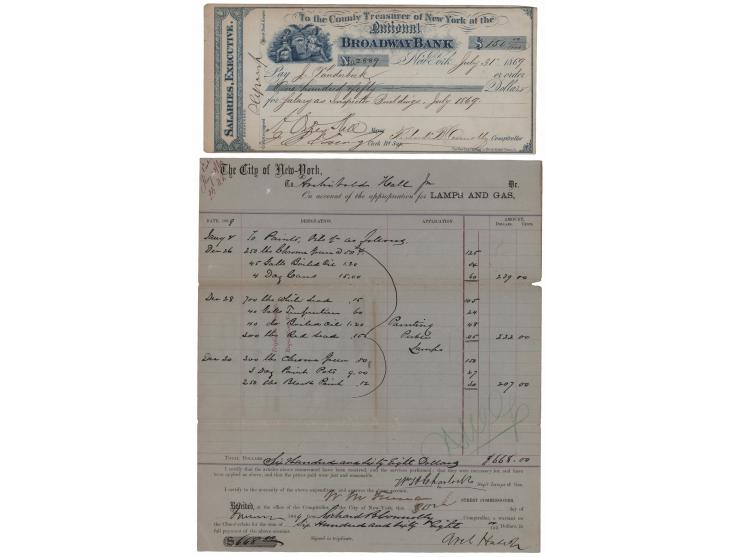 To the County Treasurer of New York at the
National
BROADWAY BANK
$ 150
SALARIES, EXECUTIVE.
No 2889 New York July 31st 1869
Pay J. Vanderbeck or order
One hundred fifty Dollars
for Salary as Inspector Buildings, July 1869.
Mayor
Comptroller
Clerk
The City of New-York,
To Archibald Hall Jr Dr.
On account of the appropriation for LAMPS AND GAS,
DATE, 186 DESIGNATION. APPLICATION. AMOUNT.
DOLLARS. CENTS.
To Paints, Oils &c as follows
Dec 26 250 lbs Chrome Green .50 125
45 Galls Boiled Oil 1.20 54
4 Doz Cans 15.00 60 239 00
Dec 28 700 lbs White Lead .15 105
40 Galls Turpentine 60 24
40 do Boiled Oil 1.20 Painting 48
300 lbs Red Lead .15 Public 45 222 00
Lamps
Dec 30 300 lbs Chrome Green .50 150
3 Doz Paint Pots 9.00 27
250 lbs Black Paint .12 30 207 00
TOTAL DOLLARS Six Hundred and sixty Eight Dollars $668.00
I certify that the articles above enumerated have been received, and the services performed; that they were necessary for and have
been applied as above, and that the prices paid were just and reasonable.
Sup't Lamps & Gas.
I certify to the necessity of the above expenditure, and approve the
STREET COMMISSIONER.
Received, at the office of the Comptroller of the City of New York, this day of
Richard B. Connolly Comptroller, a warrant on
the Chamberlain for the sum of Six Hundred and sixty Eight Dollars, in
full payment of the above account.
$668 00
Signed in triplicate.
Arch Hall Jr